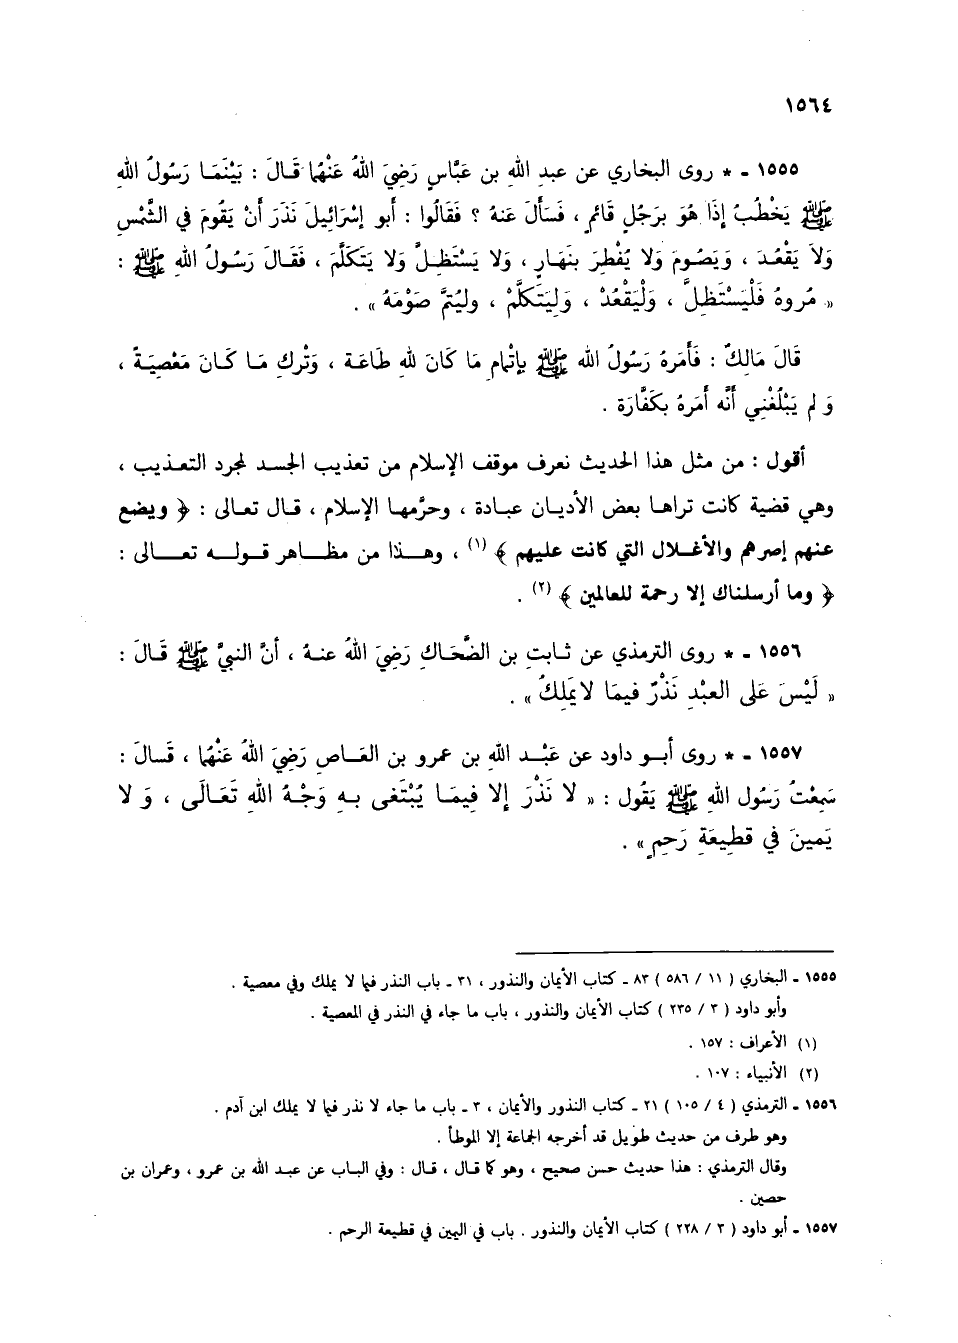 ١٥٦٤
١٥٥٥ ـ * روى البخاري عن عبدِ اللهِ بن عَبَّاسٍ رَضِيَ اللهُ عَنْهُمَا قَالَ : بَيْنَمَا رَسُولُ اللهِ
ﷺ يَخْطُبُ إِذَا هُوَ بِرَجُلٍ قَائمٍ ، فَسَأَلَ عَنهُ ؟ فَقَالُوا : أبو إسْرَائِيلَ نَذَرَ أنْ يَقُومَ في الشَّمْسِ
وَلاَ يَقْعُدَ ، وَيَصُومَ وَلا يُفْطِرَ بِنَهَارٍ ، وَلا يَسْتَظِلَّ وَلا يَتَكَلَّمَ ، فَقَالَ رَسُولُ اللهِ ﷺ :
« مُروهُ فَلْيَسْتَظِلَّ ، وَلْيَقْعُدْ ، وَلِيَتَكَلَّمْ ، وليُتمَّ صَوْمَهُ » .
قَالَ مَالِكٌ : فَأمَرهُ رَسُولُ الله ﷺ بإتْمامِ مَا كَانَ للهِ طَاعَة ، وَتْركِ مَا كَانَ مَعْصِيَةً ،
وَ لم يَبْلُغْنِي أنَّه أمَرهُ بكَفَّارَة .
أقول : من مثل هذا الحديث نعرف موقف الإسلام من تعذيب الجسد لمجرد التعذيب ،
وهي قضية كانت تراها بعض الأديان عبادة ، وحرَّمها الإسلام ، قال تعالى : ﴿ ويضع
عنهم إصرهم والأغلال التي كانت عليهم ﴾ (١) ، وهذا من مظاهر قوله تعالى :
﴿ وما أرسلناك إلا رحمة للعالمين ﴾ (٢) .
١٥٥٦ ـ * روى الترمذي عن ثابتِ بن الضَّحَاكِ رَضِيَ اللهُ عنهُ ، أنَّ النبيَّ ﷺ قَالَ :
« لَيْسَ عَلى العبْدِ نَذْرٌ فيمَا لا يَملِكُ » .
١٥٥٧ ـ * روى أبو داود عن عَبْد الله بن عمرو بن العَاصِ رَضِيَ اللهُ عَنْهُمَا ، قَالَ :
سَمِعْتُ رَسُولَ اللهِ ﷺ يَقُول : « لا نَذْرَ إلا فِيمَا يُبْتَغى بهِ وَجْهُ اللهِ تَعَالَى ، وَ لا
يَمينَ في قطِيعَةِ رَحِمٍ » .
١٥٥٥ ـ البخاري ( ١١ / ٥٨٦ ) ٨٣ ـ كتاب الأيمان والنذور ، ٣١ ـ باب النذر فيما لا يملك وفي معصية .
وأبو داود ( ٣ / ٢٣٥ ) كتاب الأيمان والنذور ، باب ما جاء في النذر في المعصية .
(١) الأعراف : ١٥٧ .
(٢) الأنبياء : ١٠٧ .
١٥٥٦ ـ الترمذي ( ٤ / ١٠٥ ) ٢١ ـ كتاب النذور والأيمان ، ٣ ـ باب ما جاء لا نذر فيما لا يملك ابن آدم .
وهو طرف من حديث طويل قد أخرجه الجماعة إلا الموطأ .
وقال الترمذي : هذا حديث حسن صحيح ، وهو كما قال ، قال : وفي الباب عن عبد الله بن عمرو ، وعمران بن
حصين .
١٥٥٧ ـ أبو داود ( ٣ / ٢٢٨ ) كتاب الأيمان والنذور . باب في اليمين في قطيعة الرحم .